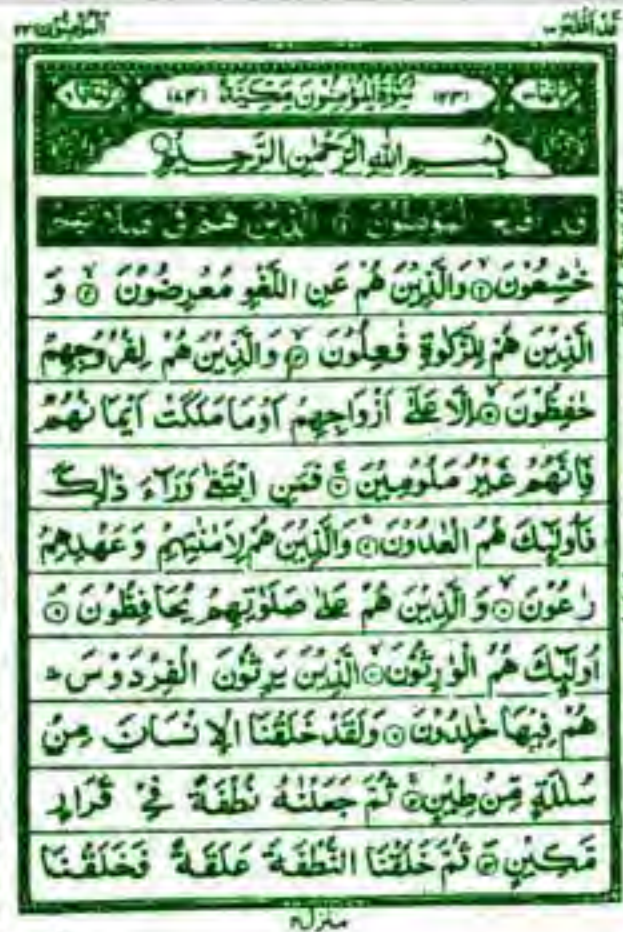 قد افلح ١٨ المؤمنون ٢٣
سُوْرَةُ الْمُؤْمِنُوْنَ مَكِّيَّةٌ
بِسْمِ اللّٰهِ الرَّحْمٰنِ الرَّحِيْمِ
قَدْ اَفْلَحَ الْمُؤْمِنُوْنَ ۱ الَّذِيْنَ هُمْ فِيْ صَلَاتِهِمْ
خٰشِعُوْنَ ۲ وَالَّذِيْنَ هُمْ عَنِ اللَّغْوِ مُعْرِضُوْنَ ۳ وَ
الَّذِيْنَ هُمْ لِلزَّكٰوةِ فٰعِلُوْنَ ۴ وَالَّذِيْنَ هُمْ لِفُرُوْجِهِمْ
حٰفِظُوْنَ ۵ اِلَّا عَلٰٓى اَزْوَاجِهِمْ اَوْمَا مَلَكَتْ اَيْمَانُهُمْ
فَاِنَّهُمْ غَيْرُ مَلُوْمِيْنَ ۶ فَمَنِ ابْتَغٰى وَرَآءَ ذٰلِكَ
فَاُولٰٓئِكَ هُمُ الْعٰدُوْنَ ۷ وَالَّذِيْنَ هُمْ لِاَمٰنٰتِهِمْ وَعَهْدِهِمْ
رٰعُوْنَ ۸ وَالَّذِيْنَ هُمْ عَلٰى صَلَوٰتِهِمْ يُحَافِظُوْنَ ۹
اُولٰٓئِكَ هُمُ الْوٰرِثُوْنَ ۱۰ الَّذِيْنَ يَرِثُوْنَ الْفِرْدَوْسَ ط
هُمْ فِيْهَا خٰلِدُوْنَ ۱۱ وَلَقَدْ خَلَقْنَا الْاِنْسَانَ مِنْ
سُلٰلَةٍ مِّنْ طِيْنٍ ۱۲ ثُمَّ جَعَلْنٰهُ نُطْفَةً فِيْ قَرَارٍ
مَّكِيْنٍ ۱۳ ثُمَّ خَلَقْنَا النُّطْفَةَ عَلَقَةً فَخَلَقْنَا
منزل ۴